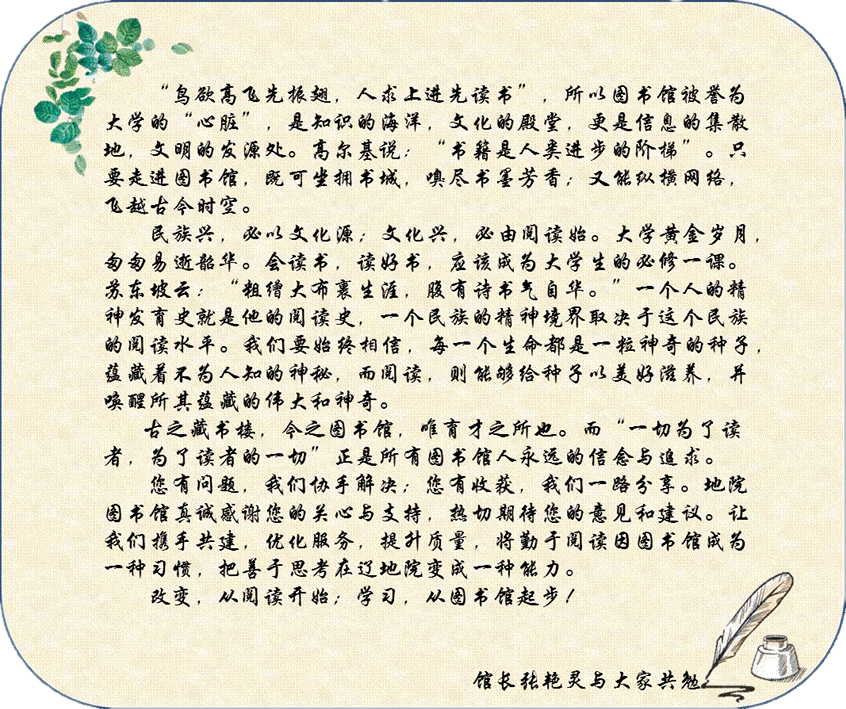 “鸟欲高飞先振翅，人求上进先读书”，所以图书馆被誉为
大学的“心脏”，是知识的海洋，文化的殿堂，更是信息的集散
地，文明的发源处。高尔基说：“书籍是人类进步的阶梯”。只
要走进图书馆，既可坐拥书城，嗅尽书墨芳香；又能纵横网络，
飞越古今时空。
民族兴，必以文化源；文化兴，必由阅读始。大学黄金岁月，
匆匆易逝韶华。会读书，读好书，应该成为大学生的必修一课。
苏东坡云：“粗缯大布裹生涯，腹有诗书气自华。”一个人的精
神发育史就是他的阅读史，一个民族的精神境界取决于这个民族
的阅读水平。我们要始终相信，每一个生命都是一粒神奇的种子，
蕴藏着不为人知的神秘，而阅读，则能够给种子以美好滋养，并
唤醒所其蕴藏的伟大和神奇。
古之藏书楼，今之图书馆，唯育才之所也。而“一切为了读
者，为了读者的一切”正是所有图书馆人永远的信念与追求。
您有问题，我们协手解决；您有收获，我们一路分享。地院
图书馆真诚感谢您的关心与支持，热切期待您的意见和建议。让
我们携手共建，优化服务，提升质量，将勤于阅读因图书馆成为
一种习惯，把善于思考在辽地院变成一种能力。
改变，从阅读开始；学习，从图书馆起步！
馆长张艳灵与大家共勉